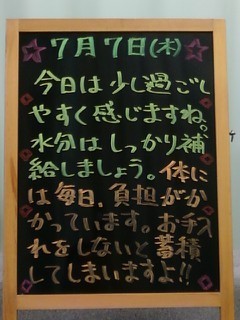 7月7日(木)
今日は少し過ごし
やすく感じますね。
水分はしっかり補
給しましょう。体に
は毎日、負担がか
かっています。お手入
れをしないと蓄積
してしまいますよ!!